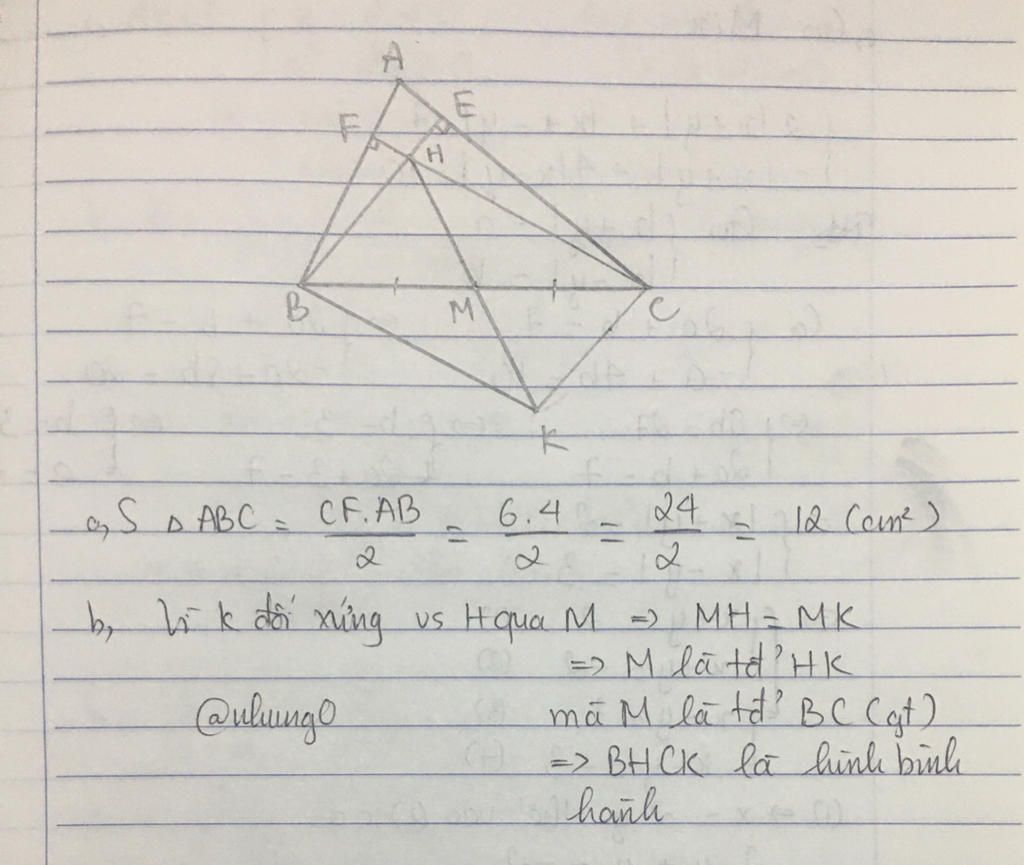 A
F
E
H
B
M
C
K
a, S △ ABC = CF.AB/2 = 6.4/2 = 24/2 = 12 (cm²)
b, Vì K đối xứng vs H qua M => MH = MK
=> M là tđ' HK
@nhung0 mà M là tđ' BC (gt)
=> BHCK là hình bình
hành